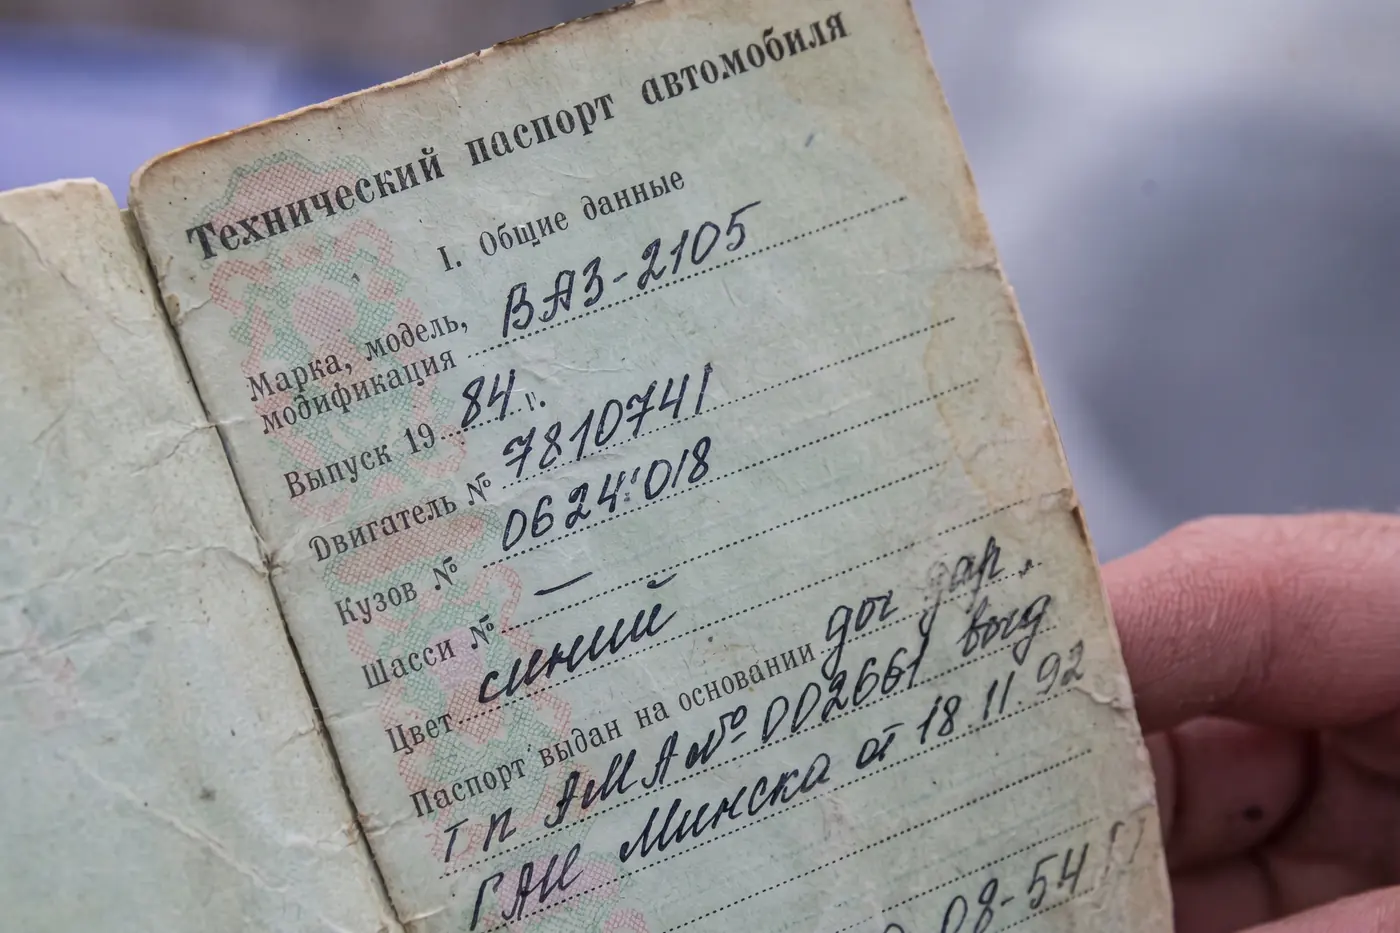 Технический паспорт автомобиля
I. Общие данные
Марка, модель,
модификация ВАЗ-2105
Выпуск 19 84 г.
Двигатель № 7810741
Кузов № 0624018
Шасси № —
Цвет синий
Паспорт выдан на основании дог дар.
тп АМА № 002661 выд
ГАИ Минска от 18.11.92
08-54